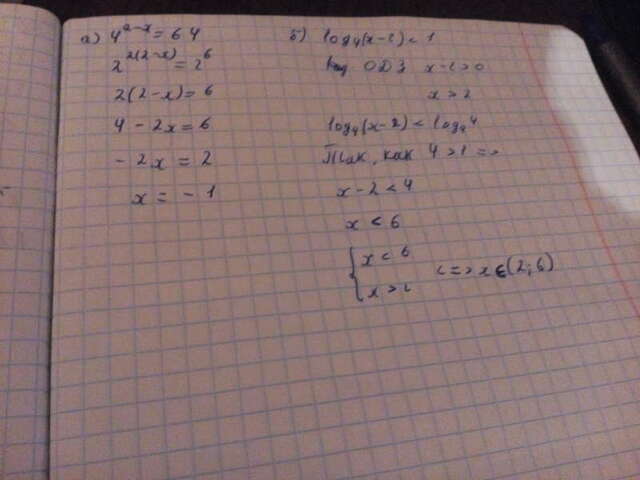 а) 4^(2-x) = 64
2^(2(2-x)) = 2^6
2(2-x) = 6
4 - 2x = 6
- 2x = 2
x = - 1
б) log₄(x-2) < 1
ОДЗ x-2>0
x > 2
log₄(x-2) < log₄4
Так, как 4 > 1 =>
x-2 < 4
x < 6
{ x < 6
x > 2 <=> x ∈ (2; 6)